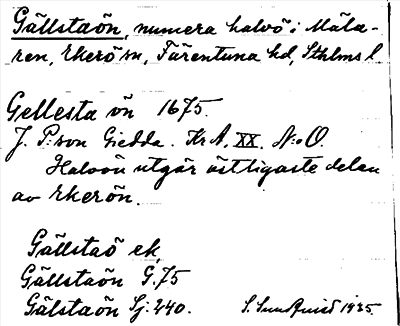 Gällstaön, numera halvö i Mäla-
ren, Ekerö sn, Färentuna hd, Sthlms l
Gellesta ön 1675.
J. P:son Giedda. KrA, XX. N:o O.
Halvön utgör östligaste delen
av Ekerön.
Gällstaö ek.
Gällstaön G. 75
Gälstaön Sj: 240. S. Sundquist 1935.